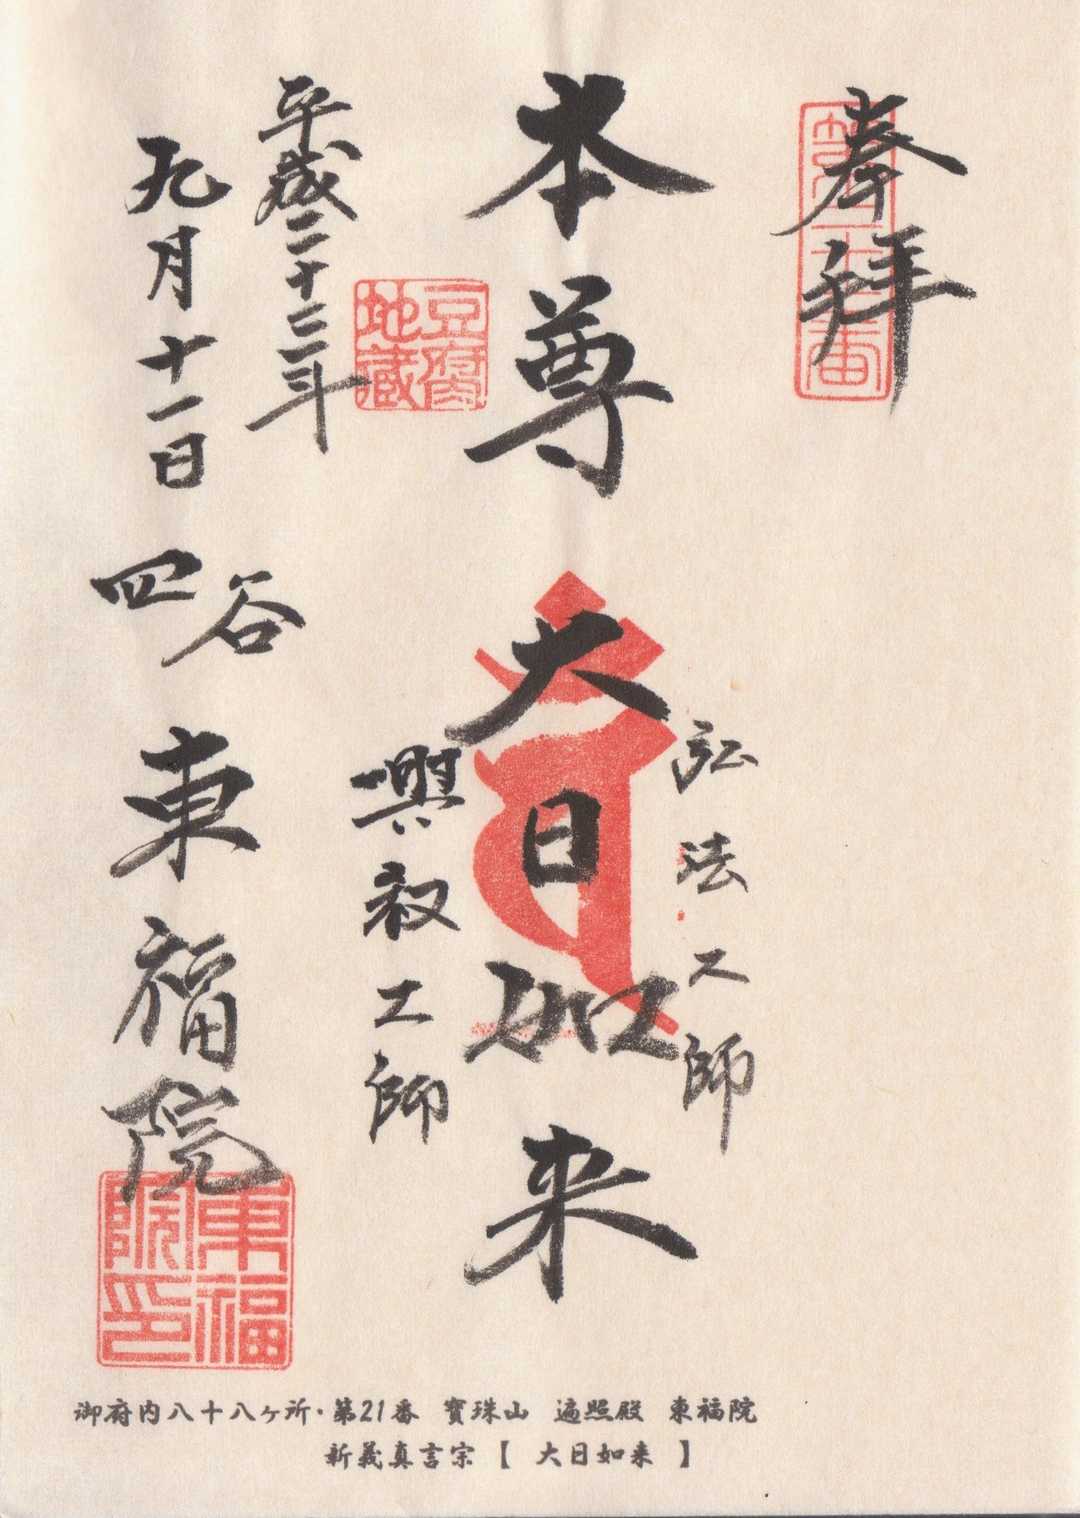 奉拝
本尊 大日如来
弘法大師
興教大師
豆腐
地蔵
平成二十二年
九月十一日
四谷 東福院
東福
院印
御府内八十八ヶ所・第21番 寳珠山 遍照殿 東福院
新義真言宗【 大日如来 】